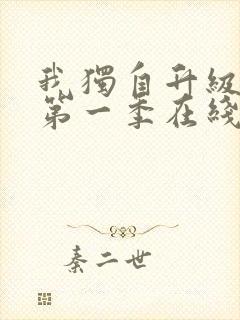 我獨自升級
第一季在綫
秦二世